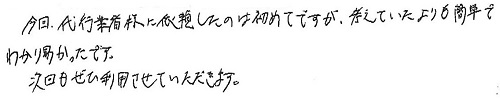 今回、代行業者様に依頼したのは初めてですが、考えていたよりも簡単で
わかり易かったです。
次回もぜひ利用させていただきます。